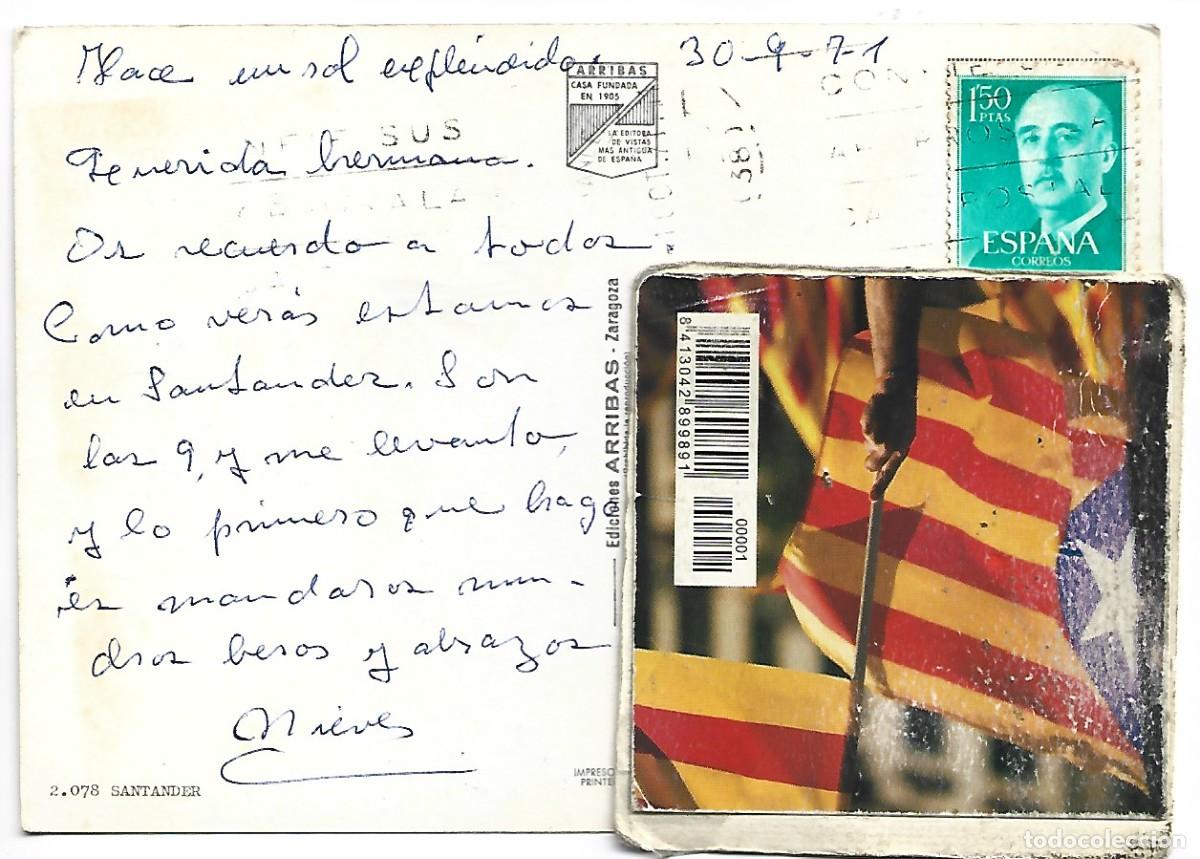 Hace un sol espléndido. 30-9-71
ARRIBAS
CASA FUNDADA
EN 1905
LA EDITORA
DE VISTAS
MAS ANTIGUA
DE ESPAÑA
1'50
PTAS
ESPAÑA
CORREOS
SUS
POSTAL
(38)
Querida hermana.
Os recuerdo a todos
Como verás estamos
en Santander. Son
las 9, y me levanto,
y lo primero que hago
es mandaros mun-
dros besos y abrazos
Nieves
2.078 SANTANDER
Ediciones ARRIBAS - Zaragoza
(Prohibida la reproducción)
IMPRESO
PRINTE
8413042899891
00001
todocoleccion